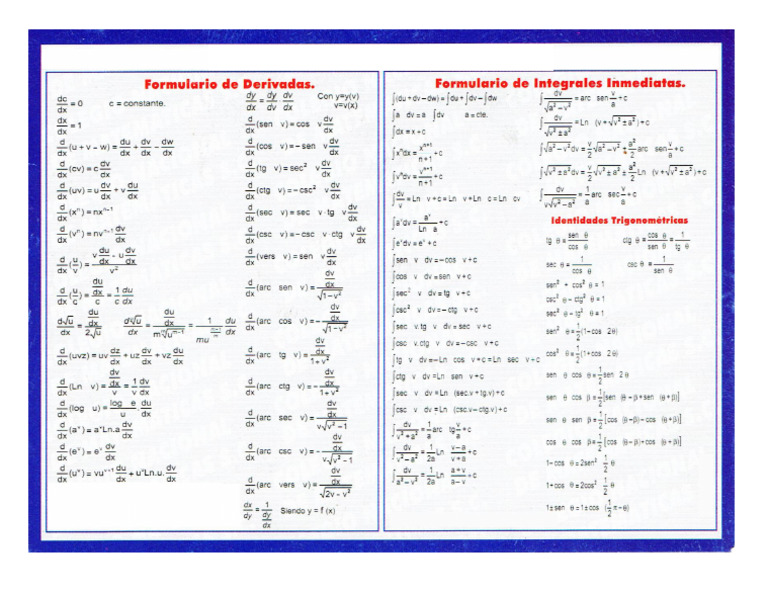 Formulario de Derivadas.
dc/dx = 0 c = constante.
dx/dx = 1
d/dx (u + v – w) = du/dx + dv/dx – dw/dx
d/dx (cv) = c dv/dx
d/dx (uv) = u dv/dx + v du/dx
d/dx (xⁿ) = nxⁿ⁻¹
d/dx (vⁿ) = nvⁿ⁻¹ dv/dx
d/dx (u/v) = (v du/dx – u dv/dx)/v²
d/dx (u/c) = (du/dx)/c = 1/c du/dx
d√u/dx = (du/dx)/(2√u) = 1/
d/dx (uvz) = uv dz/dx + uz dv/dx + vz du/dx
d/dx (Ln v) = (dv/dx)/v = 1/v dv/dx
d/dx (log u) = (log e)/u . du/dx
d/dx (aᵛ) = aᵛ Ln.a dv/dx
d/dx (eᵛ) = eᵛ dv/dx
d/dx (uᵛ) = vuᵛ⁻¹ du/dx + uᵛ Ln.u. dv/dx
dy/dx = dy/dv dv/dx Con y=y(v) v=v(x)
d/dx (sen v) = cos v dv/dx
d/dx (cos v) = – sen v dv/dx
d/dx (tg v) = sec² v dv/dx
d/dx (ctg v) = – csc² v dv/dx
d/dx (sec v) = sec v·tg v dv/dx
d/dx (csc v) = – csc v·ctg v dv/dx
d/dx (vers v) = sen v dv/dx
d/dx (arc sen v) = (dv/dx)/√(1–v²)
d/dx (arc cos v) = – (dv/dx)/√(1–v²)
d/dx (arc tg v) = (dv/dx)/(1+v²)
d/dx (arc ctg v) = – (dv/dx)/(1+v²)
d/dx (arc sec v) = (dv/dx)/(v√(v²–1))
d/dx (arc csc v) = – (dv/dx)/(v√(v²–1))
d/dx (arc vers v) = (dv/dx)/√(2v – v²)
dx/dy = 1/(dy/dx) Siendo y = f (x)
Formulario de Integrales Inmediatas.
∫(du + dv – dw) = ∫du + ∫dv – ∫dw
∫a dv = a ∫dv a = cte.
∫dx = x + c
∫xⁿdx = xⁿ⁺¹/(n+1) + c
∫vⁿdv = vⁿ⁺¹/(n+1) + c
∫dv/v = Ln v + c = Ln v + Ln c = Ln cv
∫aᵛdv = aᵛ/(Ln a) + c
∫eᵛdv = eᵛ + c
∫sen v dv = – cos v + c
∫cos v dv = sen v + c
∫sec² v dv = tg v + c
∫csc² v dv = – ctg v + c
∫sec v.tg v dv = sec v + c
∫csc v.ctg v dv = – csc v + c
∫tg v dv = – Ln cos v + c = Ln sec v + c
∫ctg v dv = Ln sen v + c
∫sec v dv = Ln (sec.v + tg.v) + c
∫csc v dv = Ln (csc.v – ctg.v) + c
∫dv/(v² + a²) = 1/a arc tg v/a + c
∫dv/(v² – a²) = 1/2a Ln (v–a)/(v+a) + c
∫dv/(a² – v²) = 1/2a Ln (a+v)/(a–v) + c
∫dv/√(a² – v²) = arc sen v/a + c
∫dv/√(v² ± a²) = Ln (v + √(v² ± a²)) + c
∫√(a² – v²) dv = v/2 √(a² – v²) + a²/2 arc sen v/a + c
∫√(v² ± a²) dv = v/2 √(v² ± a²) ± a²/2 Ln (v + √(v² ± a²)) + c
∫dv/(v√(v² – a²)) = 1/a arc sec v/a + c
Identidades Trigonométricas
tg θ = sen θ/cos θ ctg θ = cos θ/sen θ = 1/tg θ
sec θ = 1/cos θ csc θ = 1/sen θ
sen² + cos² θ = 1
csc² θ – ctg² θ = 1
sec² θ – tg² θ = 1
sen² θ = 1/2 (1– cos 2θ)
cos² θ = 1/2 (1+ cos 2θ)
sen θ cos θ = 1/2 sen 2 θ
sen θ cos β = 1/2 [sen (θ – β + sen (θ + β)]
sen θ sen β = 1/2 [cos (θ – β) – cos (θ + β)]
cos θ cos β = 1/2 [cos (θ – β) + cos (θ + β)]
1– cos θ = 2sen² 1/2 θ
1+ cos θ = 2cos² 1/2 θ
1± sen θ = 1± cos (1/2 π – θ)